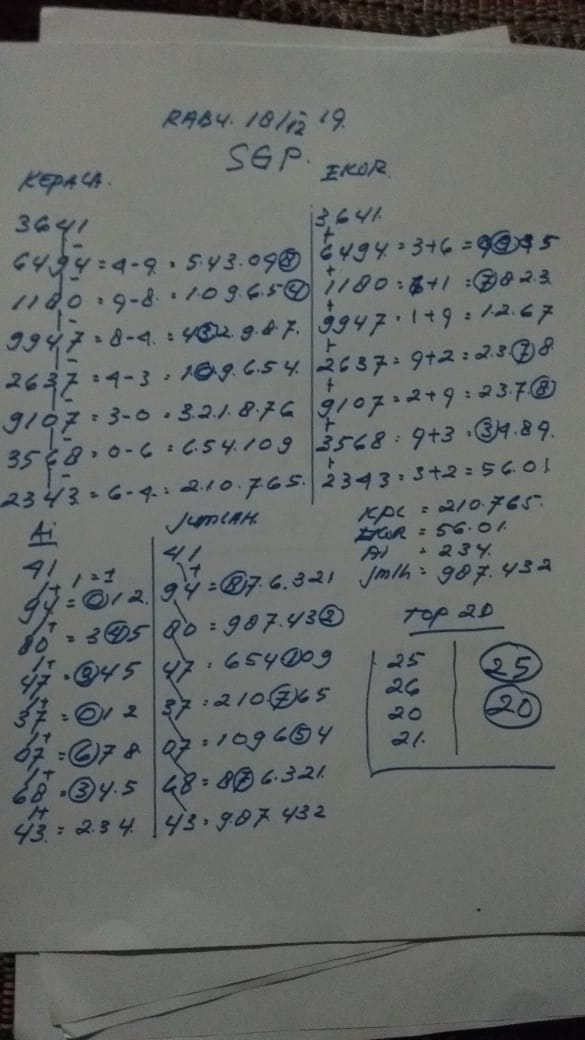 RABU. 18/12 19.
SGP.
KEPALA.
3641
6494 = 4-9 = 543.098
1180 = 9-8 = 109.654
9947 = 8-4 = 432.987.
2637 = 4-3 = 109.654.
9107 = 3-0 = 321.876
3568 = 0-6 = 654.109
2343 = 6-4 = 210.765.
EKOR.
3641.
6494 = 3+6 = 9
1180 = 6+1 = 7823
9947 = 1+9 = 12.67
2637 = 9+2 = 23.78
9107 = 2+9 = 237.8
3568 = 9+3 = 34.89.
2343 = 3+2 = 56.01
KPL = 210.765.
EKOR = 56.01.
Ai = 234.
Jmlh = 987.432
Ai
41
94 = 012.
80 = 345
47 = 345
37 = 012
07 = 678
68 = 34.5
43 = 2.34.
JUMLAH.
41
94 = 876.321
80 = 987.432
47 = 654109
37 = 210765
07 = 109654
68 = 876.321.
43 = 987432
TOP 2D
25
26
20
21.
25
20